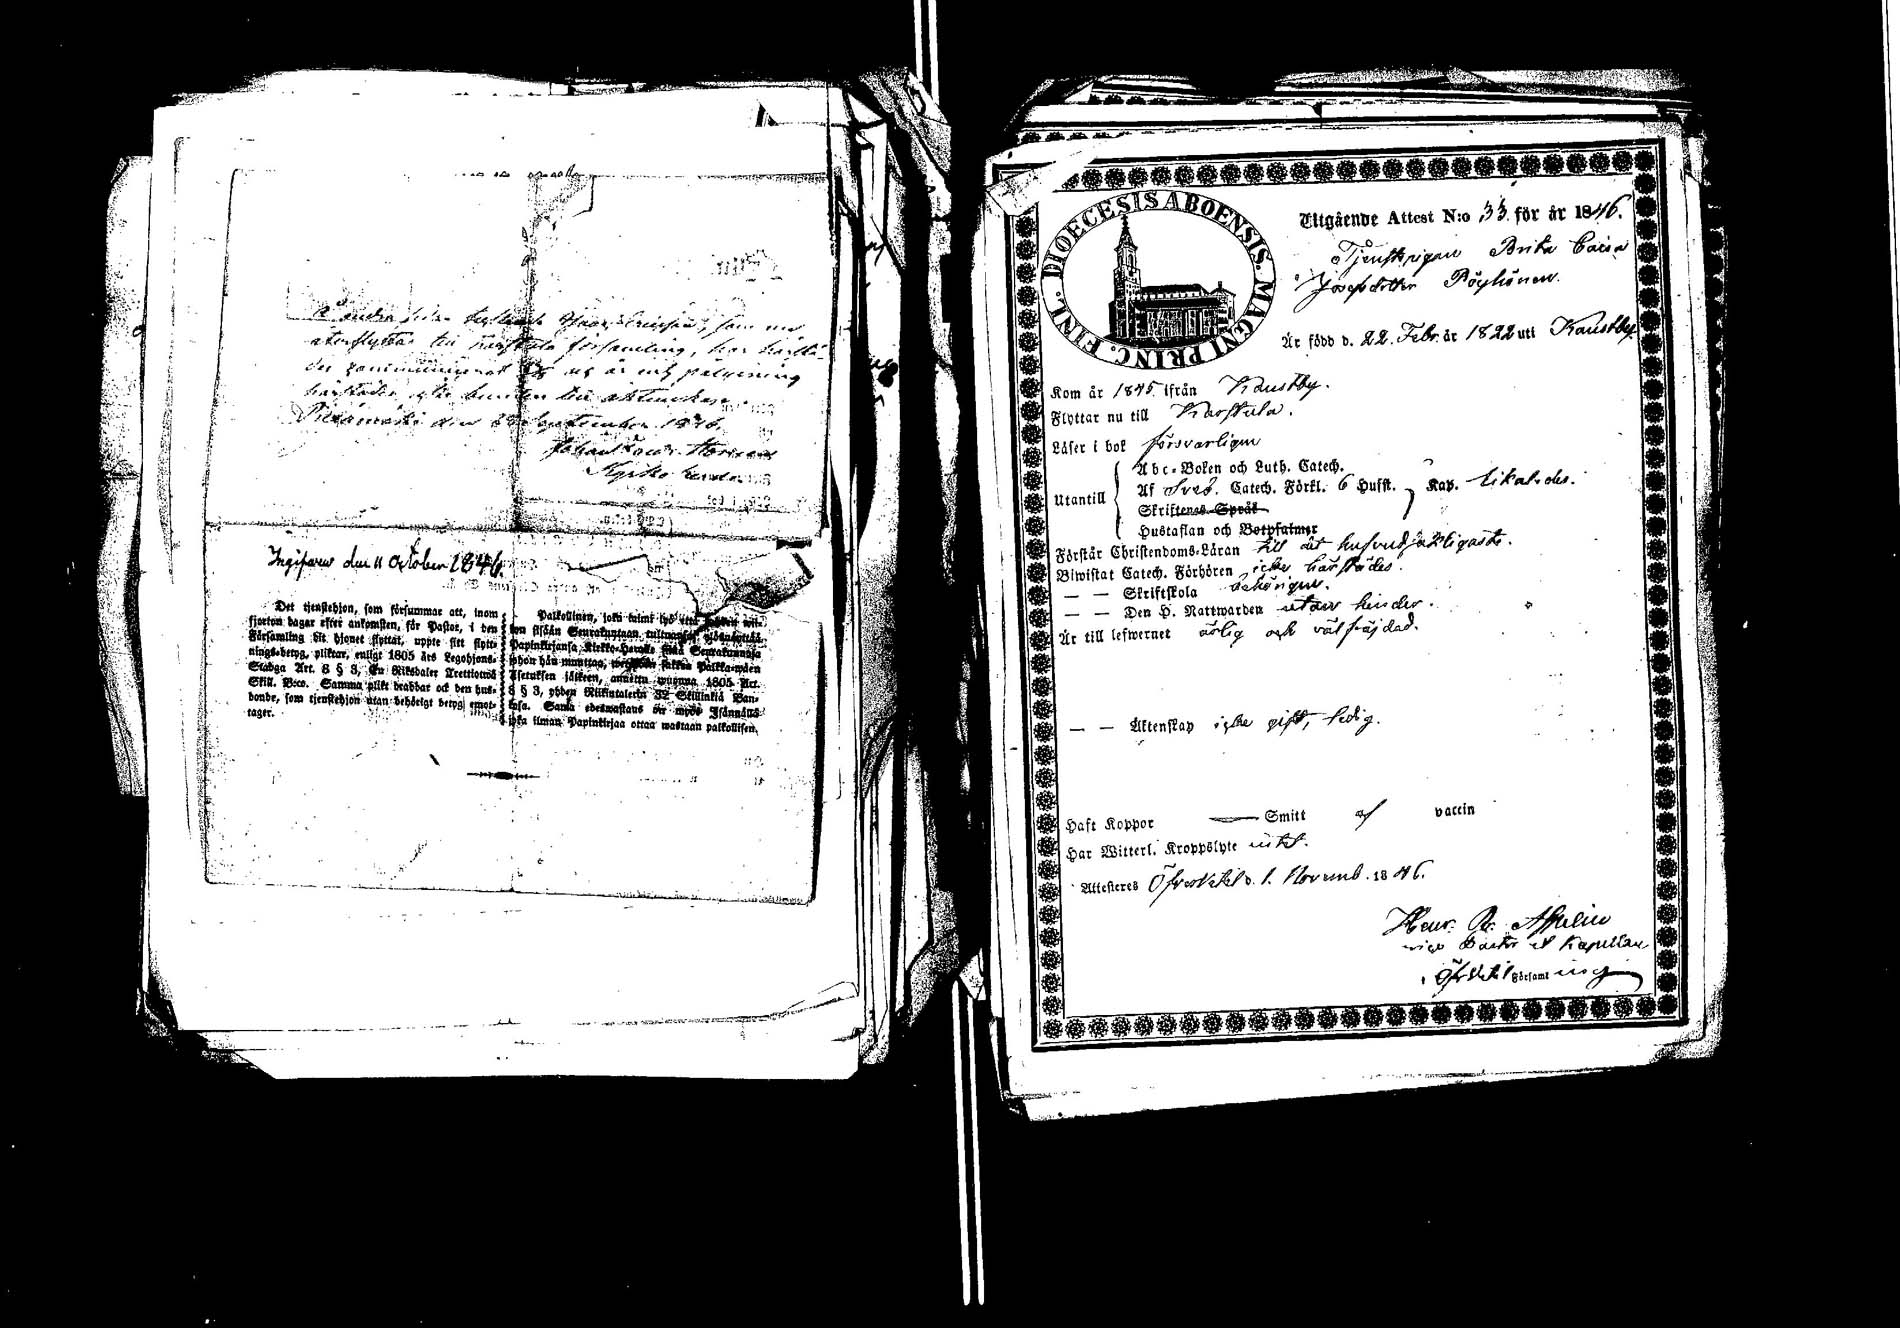 å andra sidan
återflyttar till Karstula församling, har härstä-
des communicerat
härstädes eller bunden till äktenskap.
den September 1846.
Johan
Kyrko
Ingifven den 11 October 1846.
Det tjenstehjon, som försummar att, inom
fjorton dagar efter ankomsten, för Pastor, i den
Församling dit hjonet flyttat, uppte sitt flytt-
nings-betyg, pliktar, enligt 1805 års Legohjons-
Stadga Art. 8 § 3, En Riksdaler Trettiotwå
Skill. Bco. Samma plikt drabbar ock den hus-
bonde, som tjenstehjon utan behörigt betyg emot-
tager.
Palkollinen, joka
sisään Seurakuntaan
Papinkirjansa Kirkko-Herralle siinä Seurakunnasa
johon hän muuttaa, sakkoa Palkka-wäen
Asetuksen jälkeen, annettu wuonna 1805 Art.
8 § 3, yhden Riikintalerin 32 Skillinkiä Ban-
kosa. Sama edeswastaus on myös Isännällä
joka ilman Papinkirjaa ottaa wastaan palkollisen.
DIOECESIS ABOENSIS. MAGNI PRINC. FINL.
Utgående Attest N:o 33. för år 1846.
Tjenstepigan Brita Caisa
Josefsdotter Pöyhönen.
Är född d. 22. Febr. år 1822 uti Kaustby.
Kom år 1845. ifrån Kaustby.
Flyttar nu till Karstula.
Läser i bok försvarligen
Utantill
Abc-Boken och Luth. Catech.
Af Sveb. Catech. Förkl. 6 Hufst. 7 Kap. likaledes.
Skriftenes Språk
Hustaflan och Botpsalmer
Förstår Christendoms-Läran till det hufvudsakligaste.
Biwistat Catech. Förhören icke härstädes.
— — Skriftskola behörigen.
— — Den H. Nattwarden utan hinder.
Är till lefwernet ärlig och välfräjdad.
— — Äktenskap icke gift, ledig.
Haft Koppor — Smitt af vaccin
Har Witterl. Kroppslyte intet.
Attesteres Öfvervetil d. 1. Novemb. 1846.
Henr. R. Aspelin
vice Pastor et Kapellan
Församling